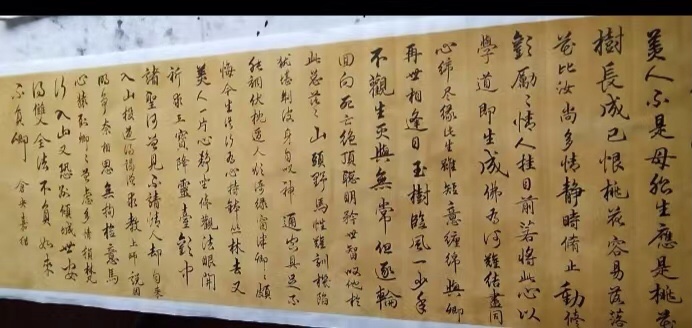 美人不是母胎生應是桃花
樹長成已恨桃花容易落落
花比汝尚多情靜時修止動修
觀歷歷情人挂目前若將此心以
學道即生成佛有何難結盡同
心締尽緣此生雖短意纏綿與卿
再世相逢日玉樹臨風一少年
不觀生灭與無常但逐輪
回向死亡絕頂聰明矜世智嘆他於
此總茫茫山頭野馬性難訓機陷
猶堪制彼身自嘆神通空具足不
能調伏枕邊人欲倚綠窗伴卿卿頗
悔今生誤道行有心持缽叢林去又
負美人一片心靜坐修觀法眼開
祈求三寶降靈臺觀中
諸聖何曾見不請情人却自來
入山投謁得道僧求教上師說因
明爭奈相思無拘檢意馬
心猿到卿卿曾慮多情損梵
行入山又恐別傾城世安
得雙全法不負如來
不負卿 倉央嘉措